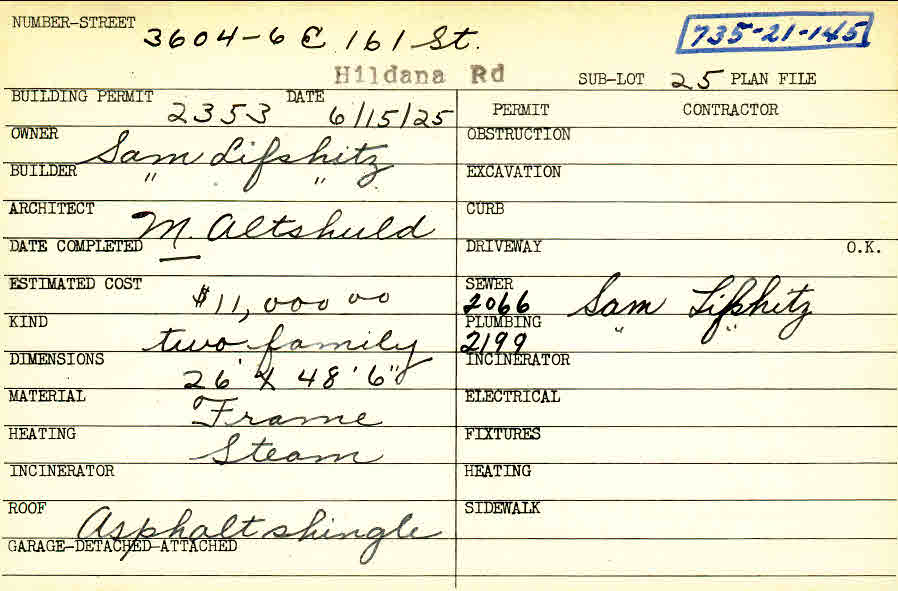 NUMBER-STREET 3604-6 E. 161 St. 735-21-145
Hildana Rd SUB-LOT 25 PLAN FILE
BUILDING PERMIT 2353 DATE 6/15/25 PERMIT CONTRACTOR
OWNER Sam Lifshitz OBSTRUCTION
BUILDER " " EXCAVATION
ARCHITECT M. Altshuld CURB
DATE COMPLETED DRIVEWAY O.K.
ESTIMATED COST $11,000 00 SEWER 2066 Sam Lifshitz
KIND two family PLUMBING 2199 " "
DIMENSIONS 26' X 48' 6" INCINERATOR
MATERIAL Frame ELECTRICAL
HEATING Steam FIXTURES
INCINERATOR HEATING
ROOF Asphalt shingle SIDEWALK
GARAGE-DETACHED-ATTACHED